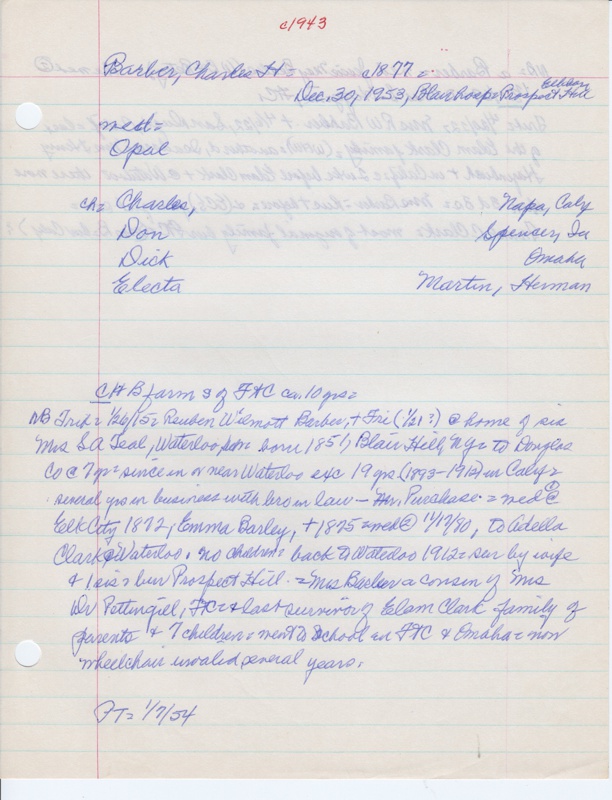 c1943
Barber, Charles H c1877 =
Dec. 30, 1953, Blair hosp = Prospect Hill
Elkhorn
med =
Opal
ch = Charles, Napa, Caly
Don Spenser, Ia
Dick Omaha
Electa Martin, Herman
CHB farm S of FtC ca. 10 yrs =
NB Trib = 1/26/15 = Reuben Wilmott Barber, + Fri (1/21?) @ home of sis
Mrs S A Teal, Waterloo, born 1851, Blair Hill, NY = to Douglas
Co @ 7 yr = since in or near Waterloo exc 19 yrs (1893-1912) in Caly =
several yrs in business with bro in law - Mr. Purchase = med @
Elk City 1872, Emma Barley, + 1875 = med @ 11/17/80, to Adella
Clark @ Waterloo. no children = back to Waterloo 1912 = sur by wife
& 1 sis = bur Prospect Hill. = Mrs Barber a cousin of Mrs
Dr Pettingill, FtC = & last survivor of Elam Clark family of
parents & 7 children = went to School in FtC & Omaha = now
wheelchair invalid several years.
FT = 1/7/54